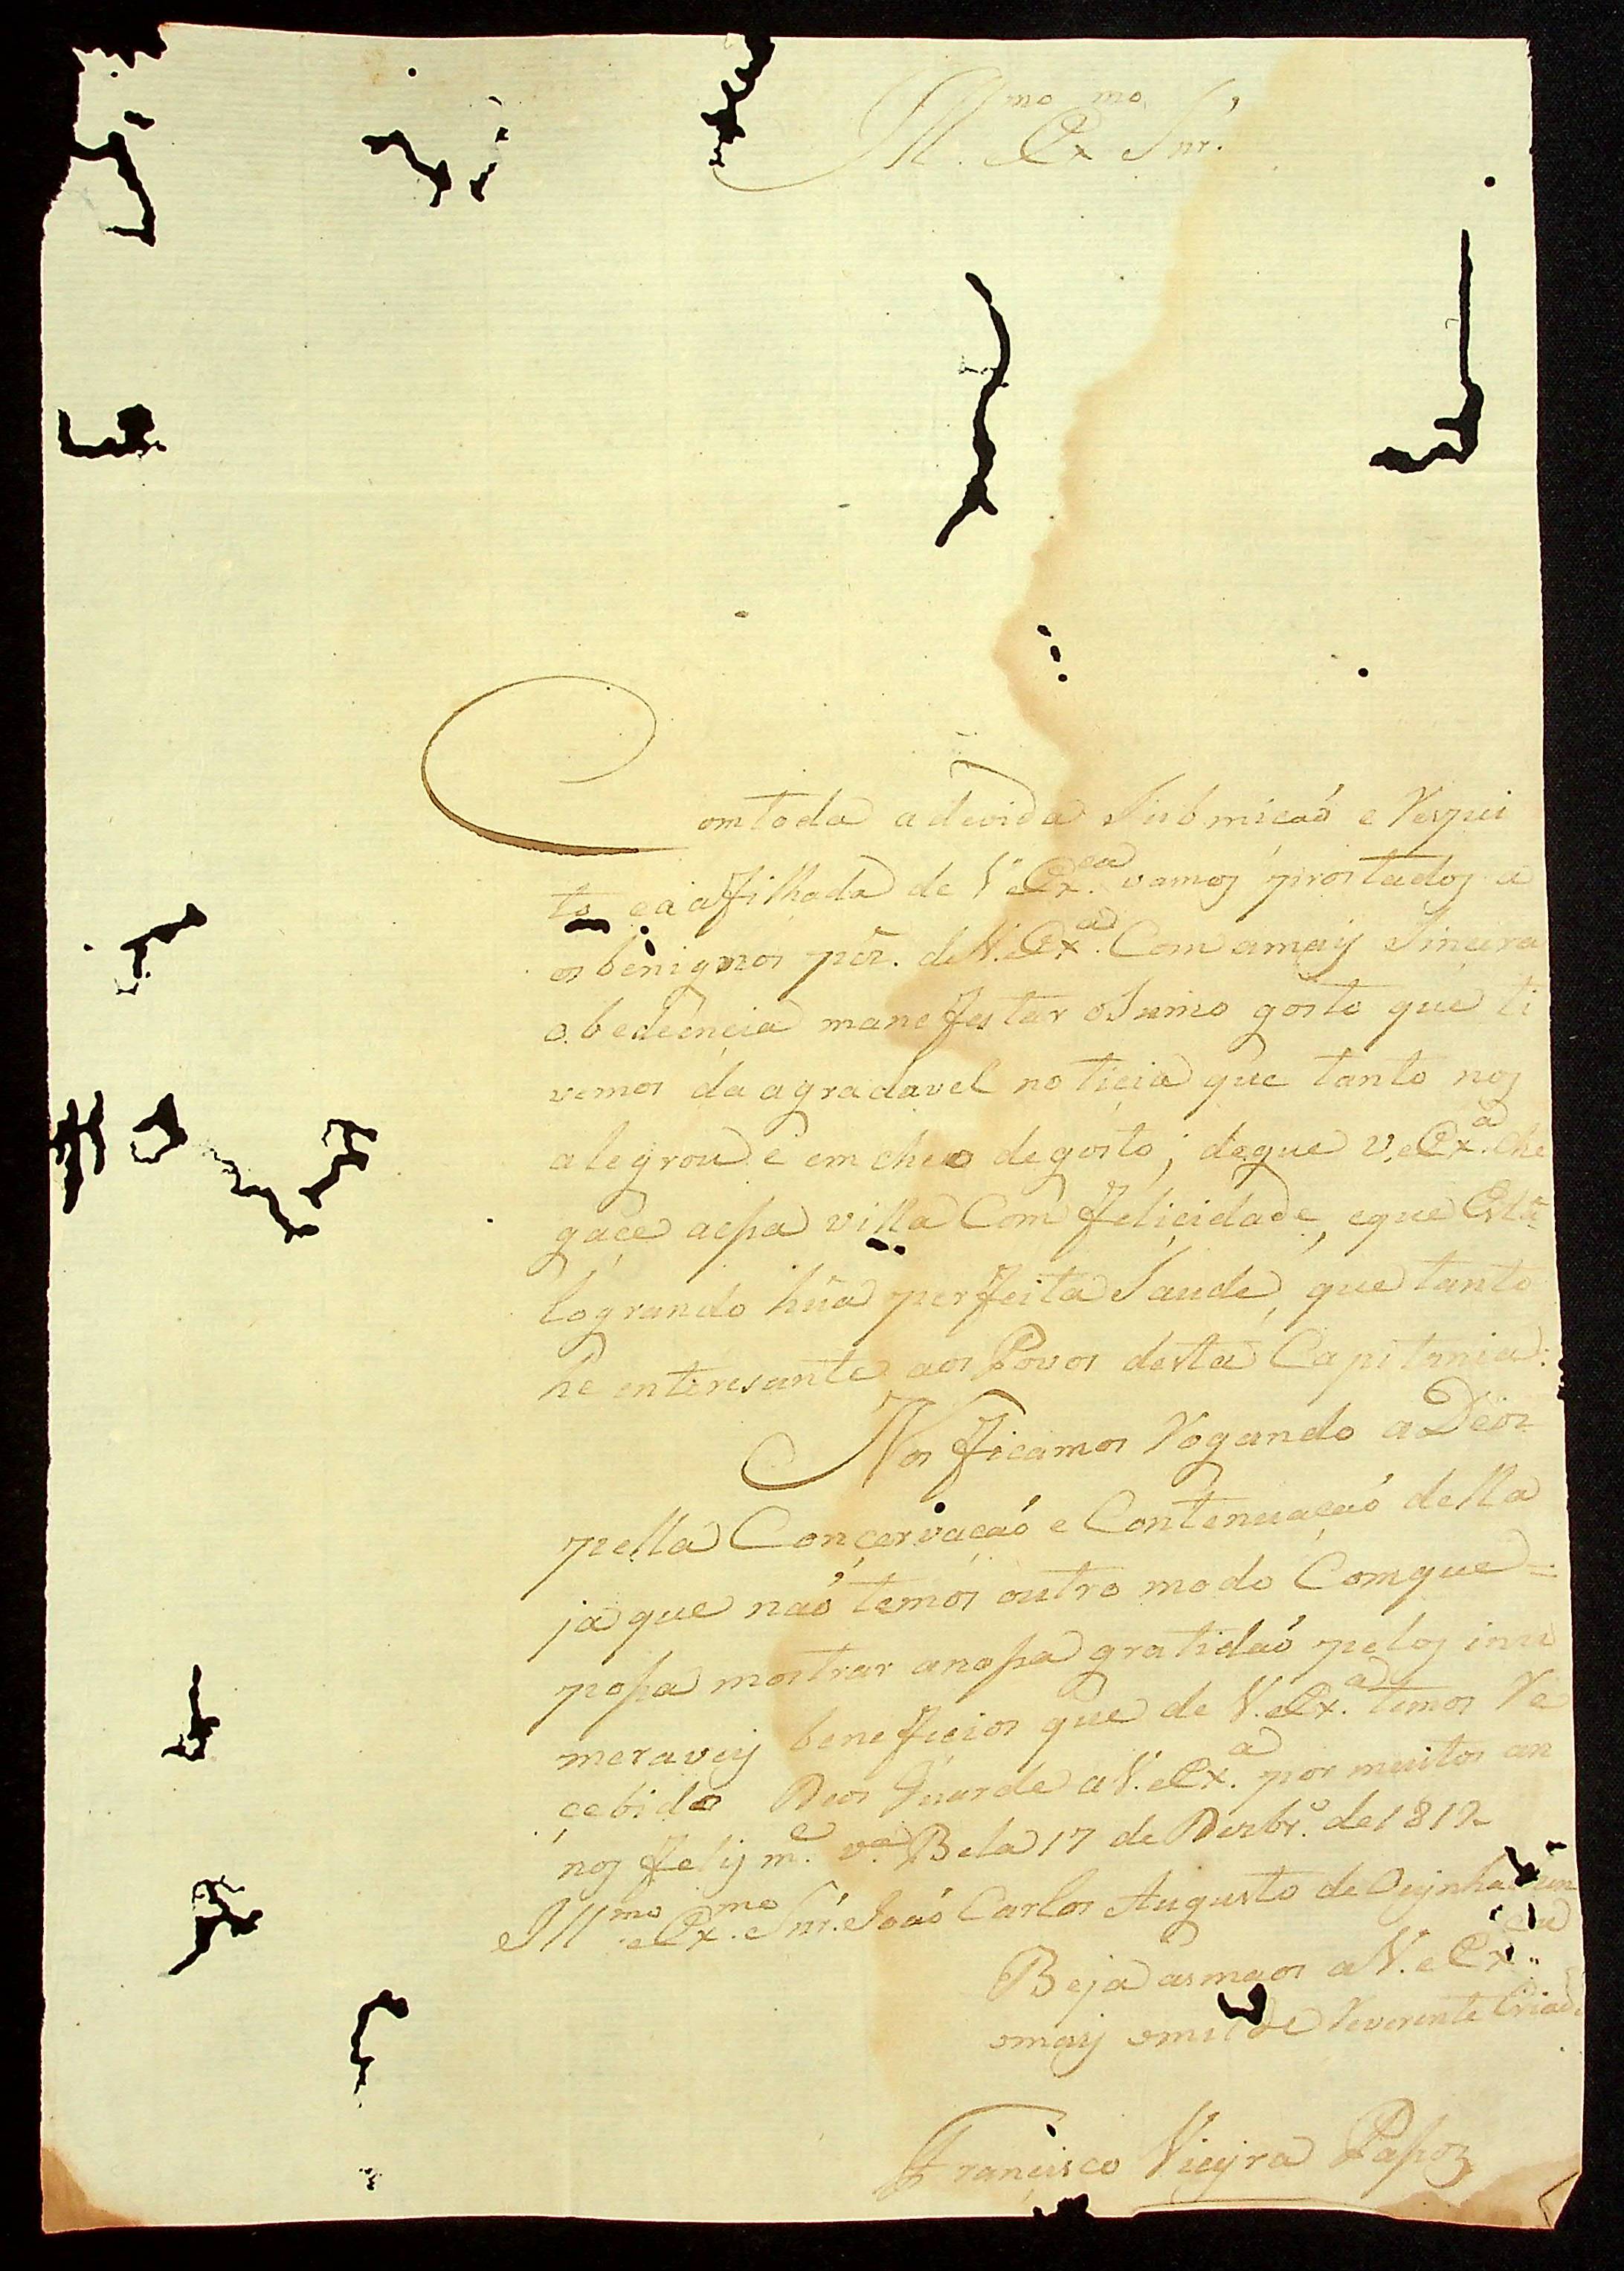 Ill.mo Ex.mo Snr.
Com toda a devida Submicaó e Respei
to eu a afilhada de V. Ex.cia vamos prostados a
os benignos péz. de V. Ex.a Com a maiz Sincera
obediençia manefestar o Sumo gosto que ti
vemos da agradavel noticia que tanto nos
alegrou e encheo de gosto; de que V. Ex.a Che
gaçe a essa villa Com feliçidade, e que Está
logrando hũa perfeita Saude, que tanto
hé enteresante aos Povos desta Capitania.
Nos ficamos Rogando a Deos
pella Conçervaçaó e Contenuaçaó della
já que naó temos outro modo Com que =
possa mostrar a nossa gratidaó pelos inu
meraveis beneficios que de V. Ex.a temos Re
çebido Deos Guarde a V. Ex.a por muitos an
nos felizm.e V.a Bela 17 de Dezbr.o de 1817
Ill.mo Ex.mo Snr. Joaó Carlos Augusto de Oeynhausen
Beja as maos a V. Ex.cia
o maiz omilde Reverente Criado
Françisco Vieyra Passos